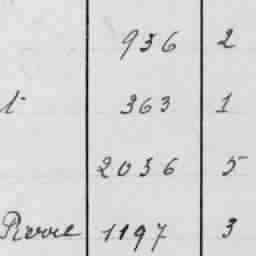 936 2
363 1
2036 5
Pierre 1197 3